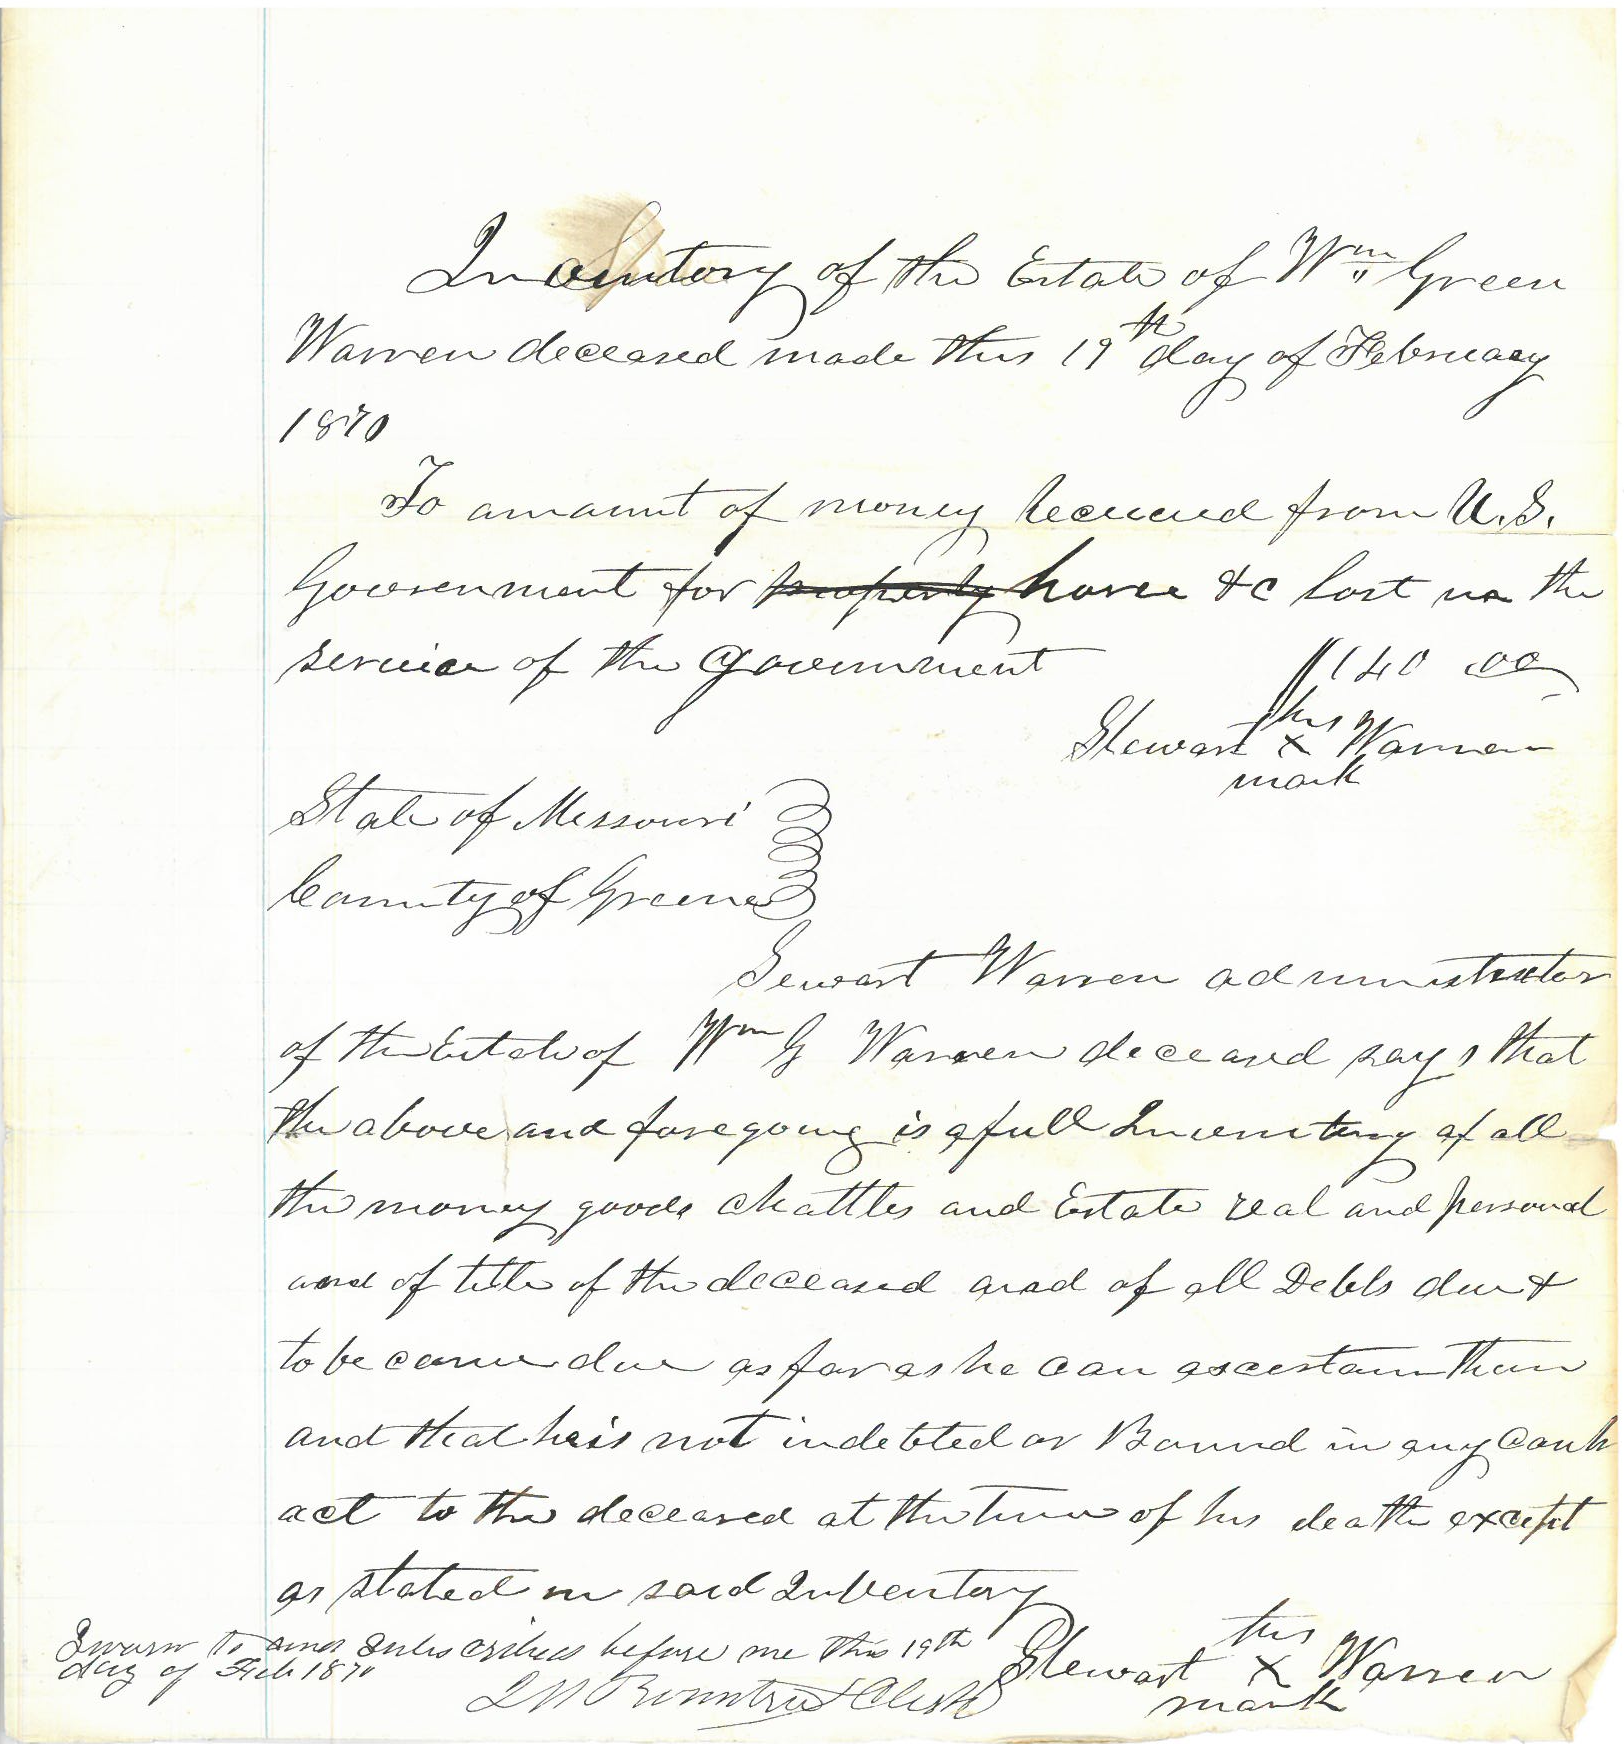 Inventory of the Estate of Wm Green
Warren deceased made this 19th day of February
1870
To amount of money Received from U.S.
Government for property horse &c lost in the
service of the Government $140 00
his
Stewart x Warren
mark
State of Missouri
County of Greene
Sewart Warren administrator
of the Estate of Wm G Warren deceased says that
the above and foregoing is a full Inventory of all
the money goods chattles and Estate real and personal
and of title of the deceased and of all Debts due &
to be come due as far as he can ascertain them
and that he is not indebted or Bound in any Contr
act to the deceased at the time of his death except
as stated in said Inventory
Sworn to and subscribed before me this 19th
day of Feb 1870
his
Stewart x Warren
mark
Rountree Clerk